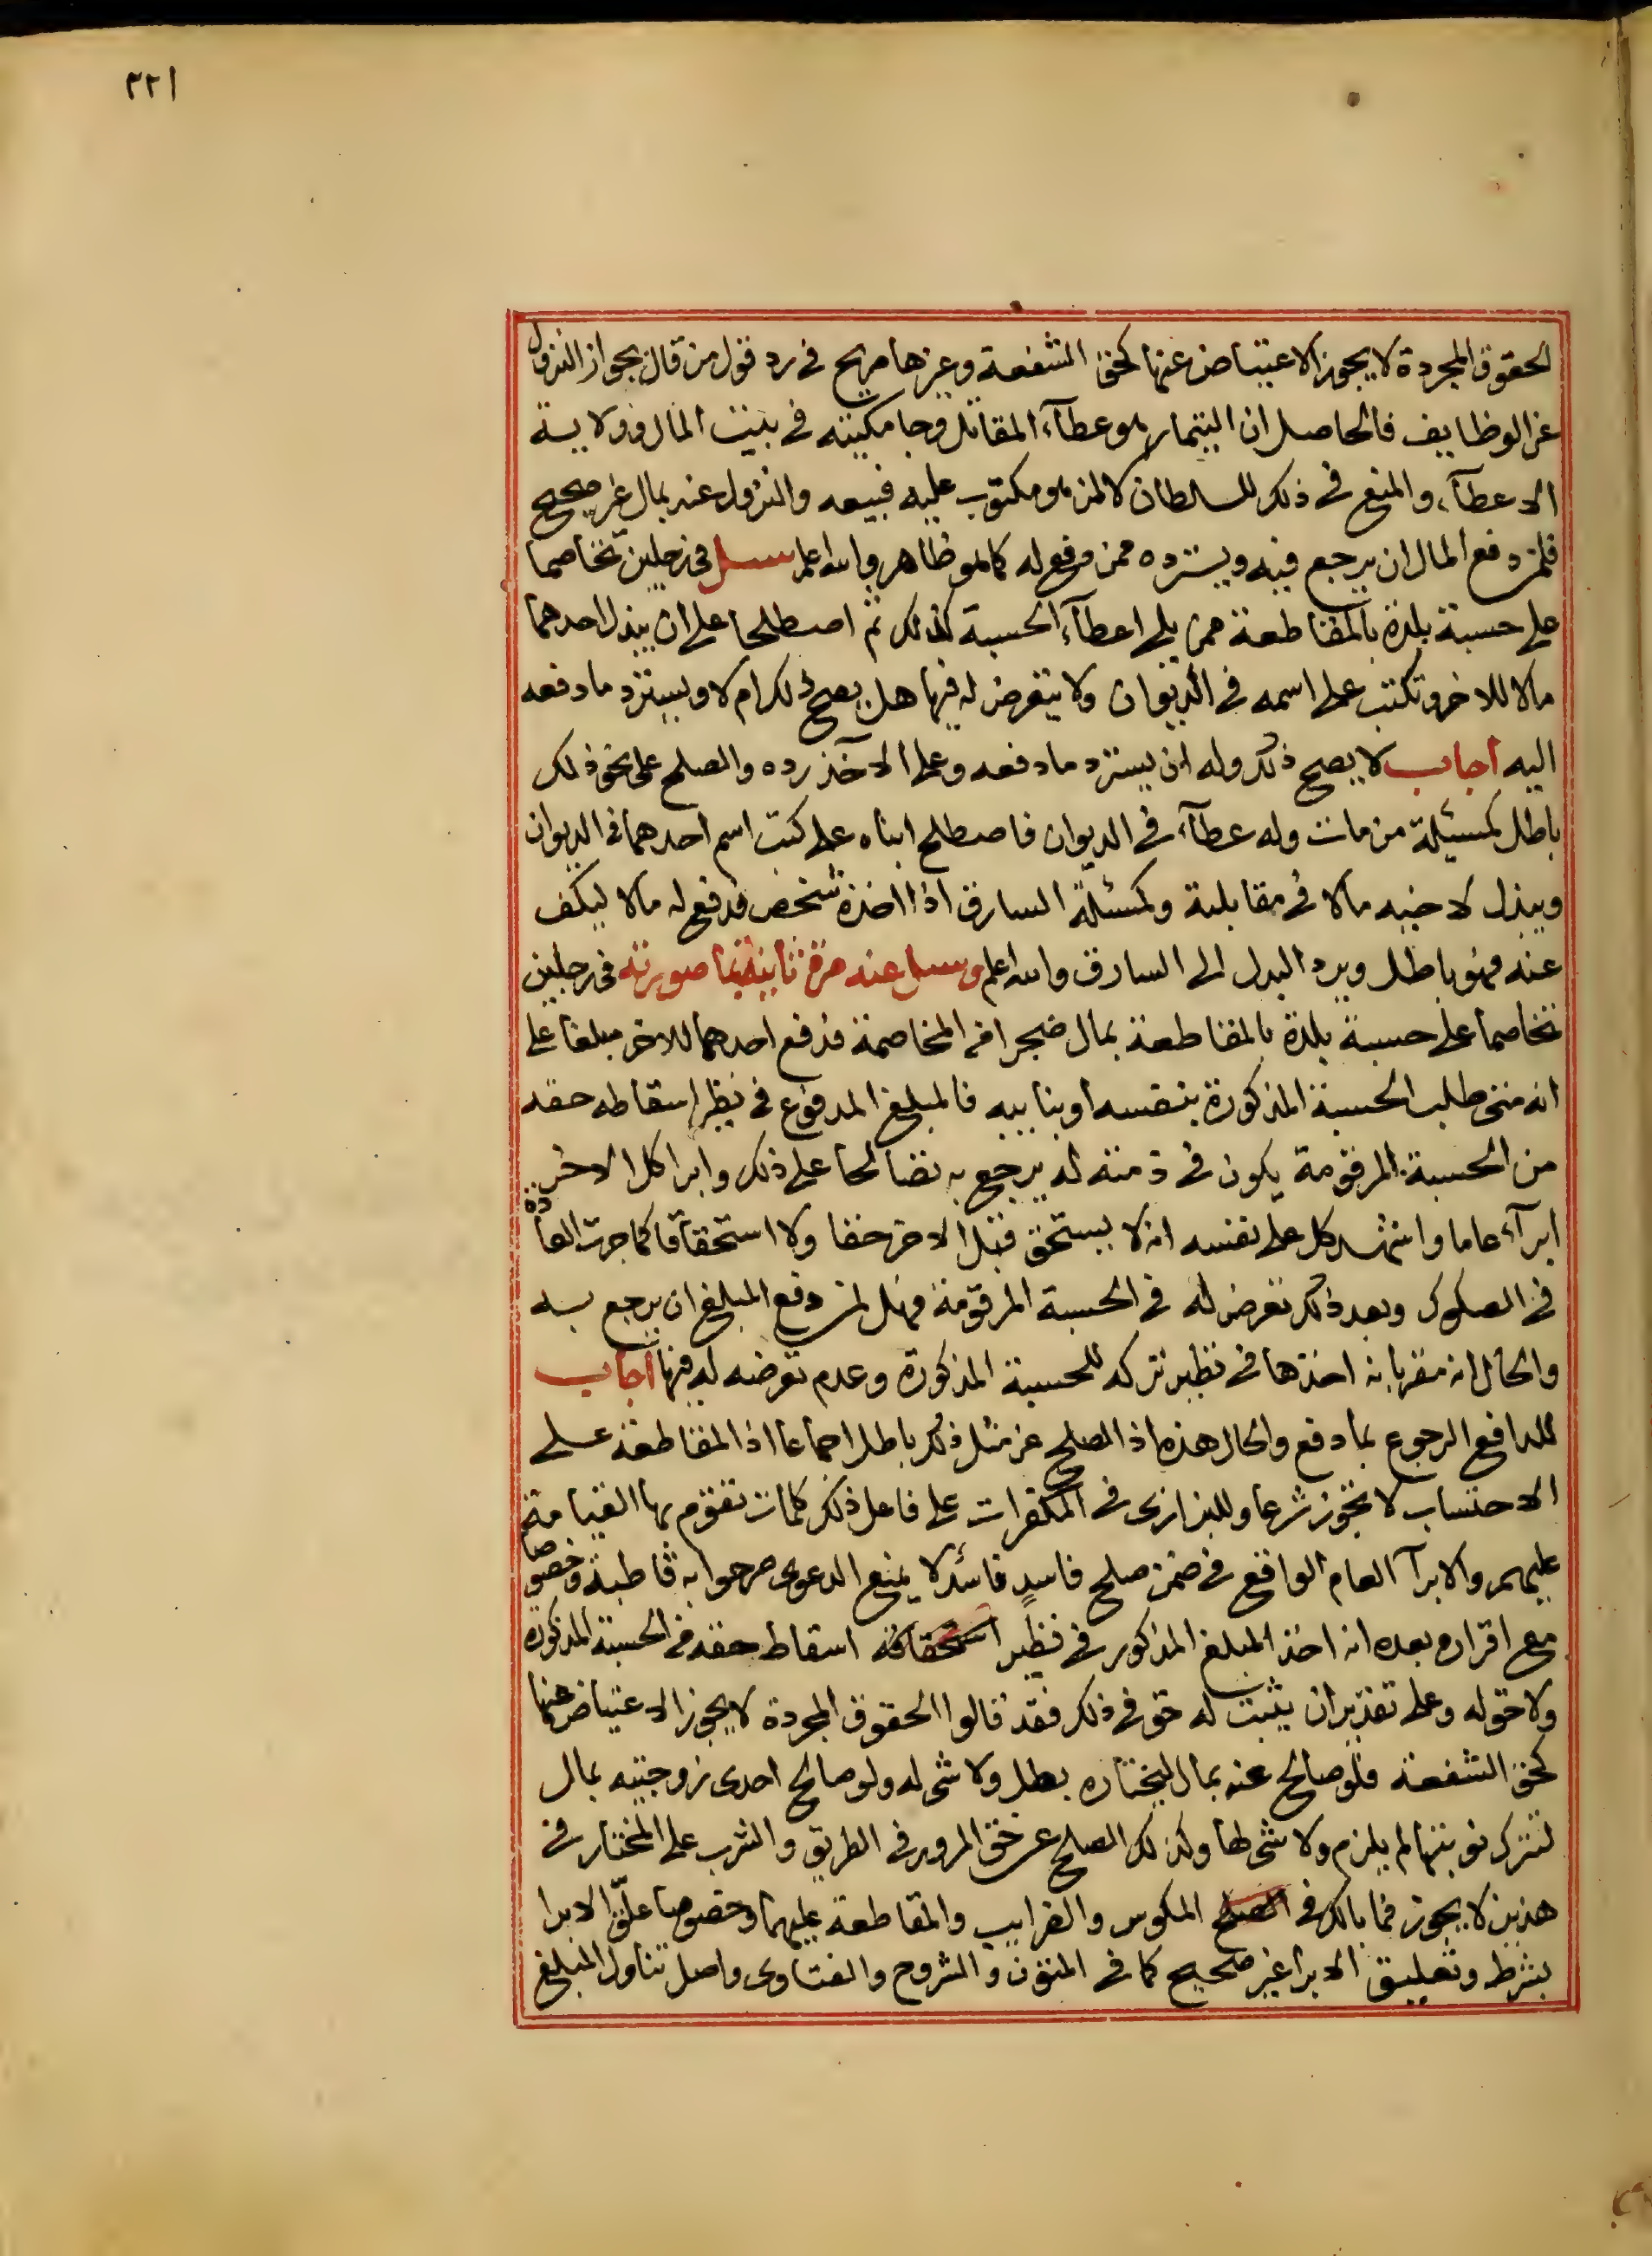 ٢٢١
الحقوق المجردة لا يجوز الاعتياض عنها كحق الشفعة وغيرها صريح في رد قول من قال بجواز النزول
عن الوظايف فالحاصل ان التيمار هو عطآء المقاتل وجامكيته في بيت المال وولاية
الاعطآء والمنع في ذلك للسلطان لا لمن هو مكتوب عليه فبيعه والنزول عنه بمال غير صحيح
فلمن دفع المال ان يرجع فيه ويسترده ممن دفع له كما هو ظاهر والله اعلم سئل في رجلين تخاصما
على حسبة بلدة بالمقاطعة ممن يلي اعطآء الحسبة كذلك ثم اصطلحا على ان يبذل احدهما
مالا للاخر وتكتب على اسمه في الديوان ولا يتعرض له فيها هل يصح ذلك ام لا ويسترد ما دفعه
اليه اجاب لا يصح ذلك وله ان يسترد ما دفعه وعلى الآخذ رده والصلح على نحو ذلك
باطل كمسئلة من مات وله عطآء في الديوان فاصطلح ابناه على كتب اسم احدهما في الديوان
ويبذل لاخيه مالا في مقابلته وكمسئلة السارق اذا اخذه شخص فدفع له مالا ليكف
عنه فهو باطل ويرد البدل الى السارق والله اعلم وسئل عنه مرة ثانية بما صورته في رجلين
تخاصما على حسبة بلدة بالمقاطعة بمال ضجرا في المخاصمة فدفع احدهما للاخر مبلغا على
انه متى طلب الحسبة المذكورة بنفسه او بنايبه فالمبلغ المدفوع في نظير اسقاطه حقه
من الحسبة المرقومة يكون في ذمته له يرجع به تصالحا على ذلك وابرا كل الاخر
ابرآء عاما واشهد كل على نفسه انه لا يستحق قبل الاخر حقا ولا استحقاقا كما جرت العادة
في الصكوك وبعد ذلك تعرض له في الحسبة المرقومة فهل لمن دفع المبلغ ان يرجع به
والحال انه مقر بانه اخذها في نظير تركه للحسبة المذكورة وعدم تعرضه له فيها اجاب
للدافع الرجوع بما دفع والحال هذه اذ الصلح عن مثل ذلك باطل اجماعا اذ المقاطعة على
الاحتساب لا تجوز شرعا وللبزازى في المكفرات على فاعل ذلك كلمات تقوم بها القيامة
عليهم والابرآ العام الواقع في ضمن صلح فاسد فاسد لا يمنع الدعوى صرحوا به قاطبة وخصوصا
مع اقراره بعده انه اخذ المبلغ المذكور في نظير استحقاقه اسقاط حقه في الحسبة المذكورة
ولا حق له وعلى تقدير ان يثبت له حق في ذلك فقد قالوا الحقوق المجردة لا يجوز الاعتياض عنها
كحق الشفعة فلو صالح عنه بمال ليختاره بطل ولا شى له ولو صالح احدى زوجتيه بمال
لتترك نوبتها لم يلزم ولا شى لها وكذلك الصلح عن حق المرور في الطريق والشرب على المختار في
هذين لا يجوز فما بالك في الصلح المكوس والضرايب والمقاطعة عليهما وخصوصا علّق الابرا
بشرط وتعليق الابرا غير صحيح كما في المتون والشروح والفتاوى واصل تناول المبلغ